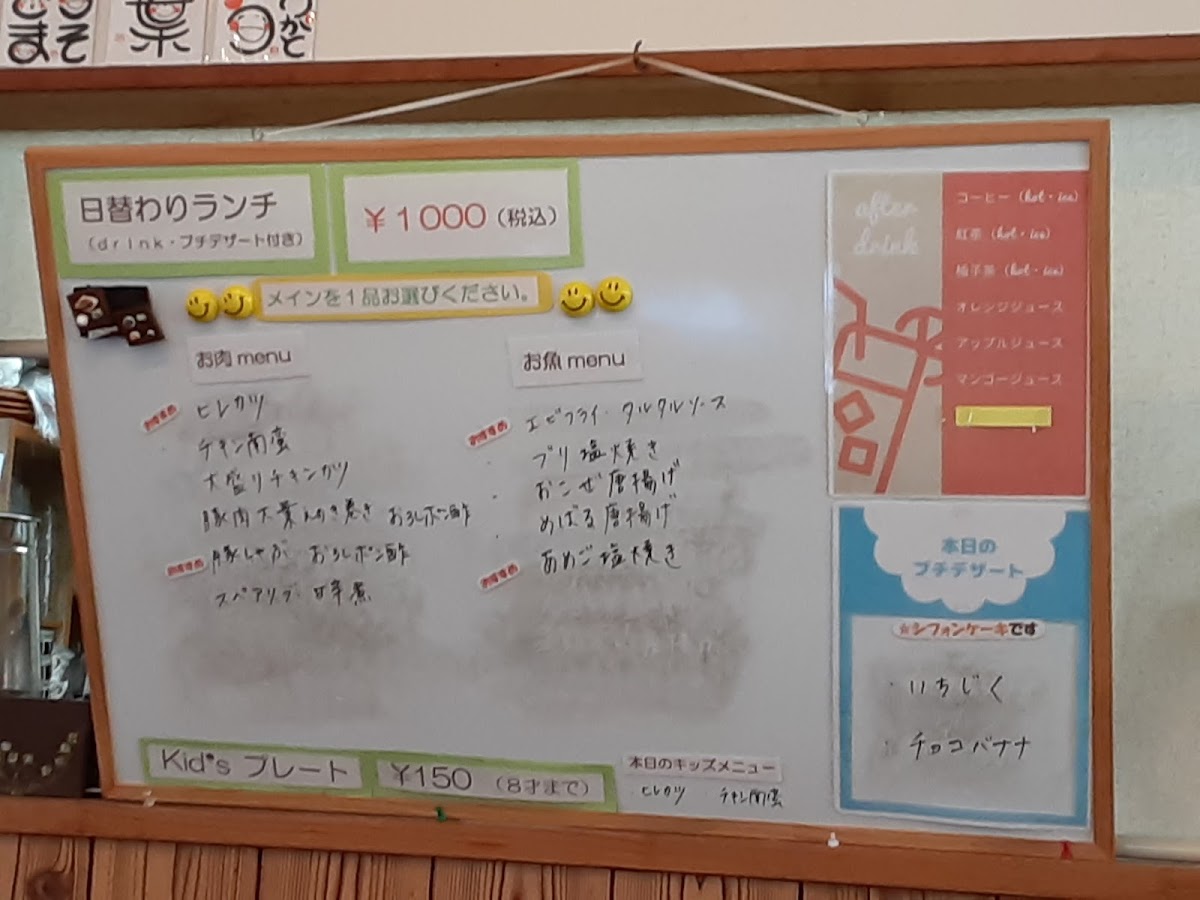 葉
日替わりランチ
(drink・プチデザート付き)
¥1000(税込)
メインを1品お選びください。
お肉menu
おすすめ ヒレカツ
チキン南蛮
大盛りチキンカツ
豚肉大葉 巻き おろしポン酢
おすすめ 豚しゃぶ おろしポン酢
スペアリブ 甘辛煮
お魚menu
おすすめ エビフライ・タルタルソース
ブリ塩焼き
おこぜ唐揚げ
めばる唐揚げ
おすすめ あめご塩焼き
Kid's プレート
¥150 (8才まで)
本日のキッズメニュー
・ヒレカツ ・チキン南蛮
after
drink
コーヒー(hot・ice)
紅茶(hot・ice)
柚子茶(hot・ice)
オレンジジュース
アップルジュース
マンゴージュース
本日の
プチデザート
☆シフォンケーキです
・いちじく
・チョコバナナ